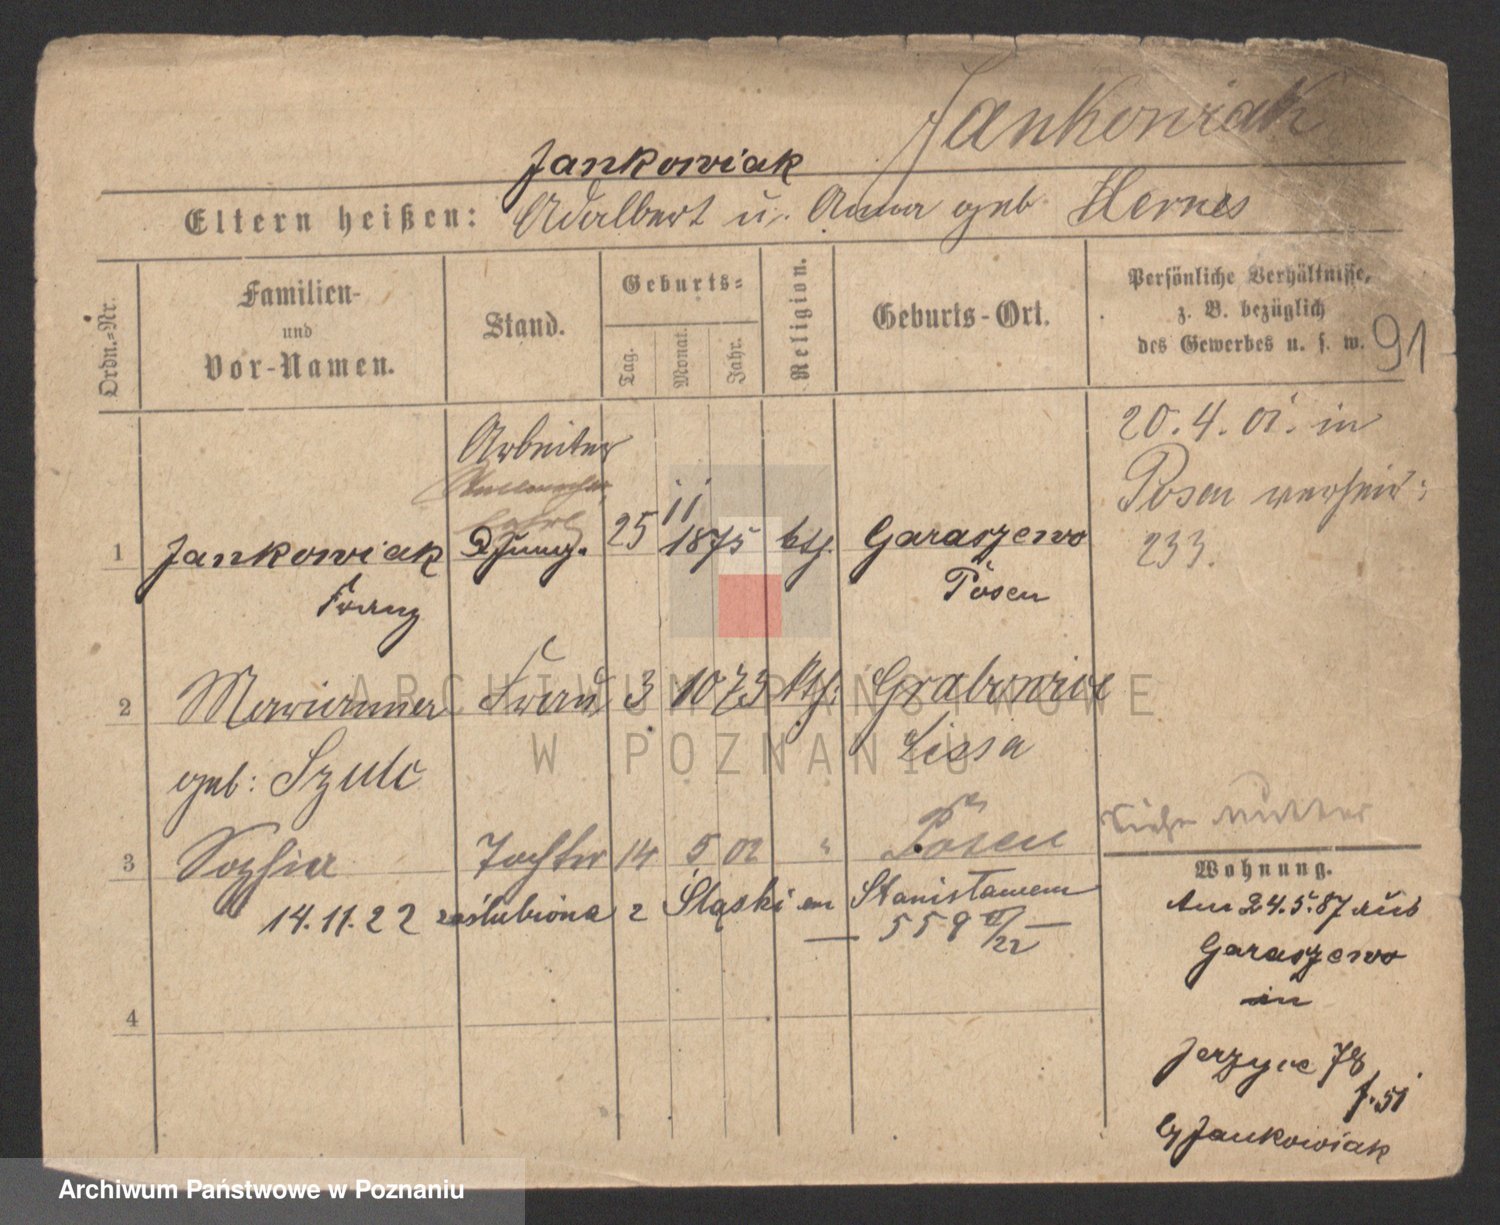 Jankowiak
Jankowiak
Eltern heißen: Adalbert u. Anna geb. Hernes
Ordn.=Nr.
Familien-
und
Vor-Namen.
Stand.
Geburts=
Tag.
Monat.
Jahr.
Religion.
Geburts-Ort.
Persönliche Verhältnisse,
z. B. bezüglich
des Gewerbes u. s. w.
91
Arbeiter
1 Jankowiak 25 11 1875 kth. Garaszewo
Franz Posen
20.4.01. in
Posen verheir:
233.
2 Marianna Frau 3 10 73 kth: Grabonwice
geb: Szulc Lissa
3 Sophia Tochter 14 5 02 " Posen
14.11.22 zaślubiona z Śląski em Stanisławem
— 559 /22 —
4
Siehe Mutter
Wohnung.
Am 24.5.87 aus
Garaszewo
in
Jerzyce 78
f. 51
by Jankowiak
ARCHIWUM PAŃSTWOWE
W POZNANIU
Archiwum Państwowe w Poznaniu